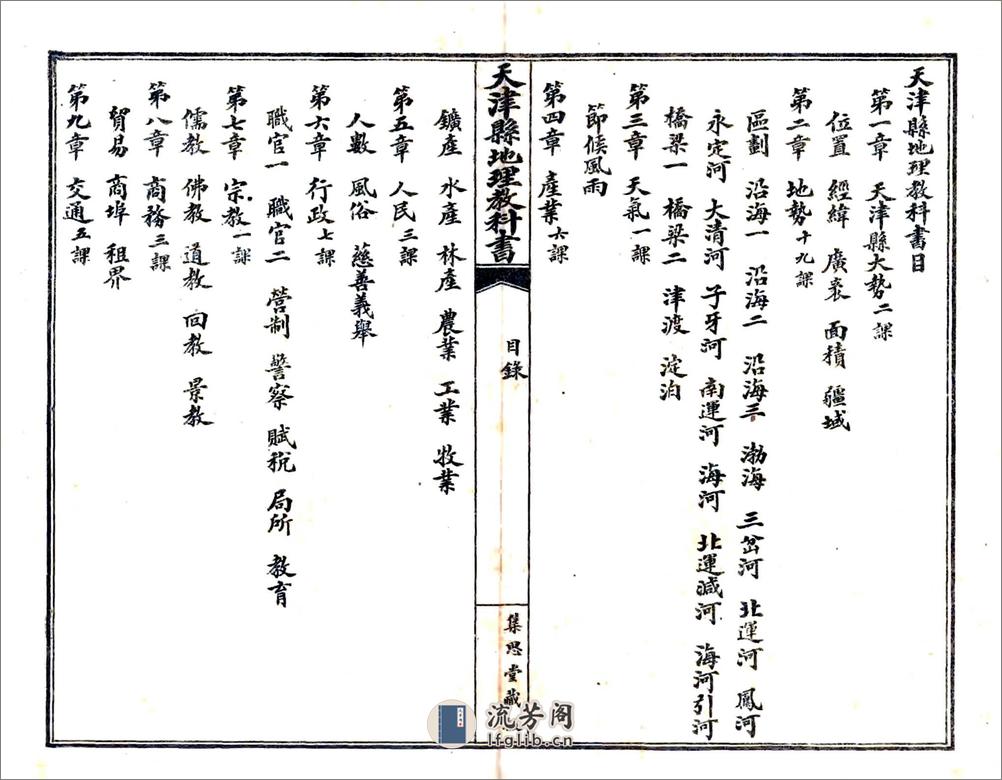 天津縣地理教科書目
第一章　天津縣大勢二課
位置　經緯　廣袤　面積　疆域
第二章　地勢十九課
區劃　沿海一　沿海二　沿海三　渤海　三岔河　北運河　鳳河
永定河　大清河　子牙河　南運河　海河　北運減河　海河引河
橋梁一　橋梁二　津渡　淀泊
第三章　天氣一課
節候風雨
第四章　產業六課
天津縣地理教科書
目錄
集思堂藏
鑛產　水產　林產　農業　工業　牧業
第五章　人民三課
人數　風俗　慈善義舉
第六章　行政七課
職官一　職官二　營制　警察　賦稅　局所　教育
第七章　宗教一課
儒教　佛教　道教　回教　景教
第八章　商務三課
貿易　商埠　租界
第九章　交通五課
流芳阁
lfglib.cn